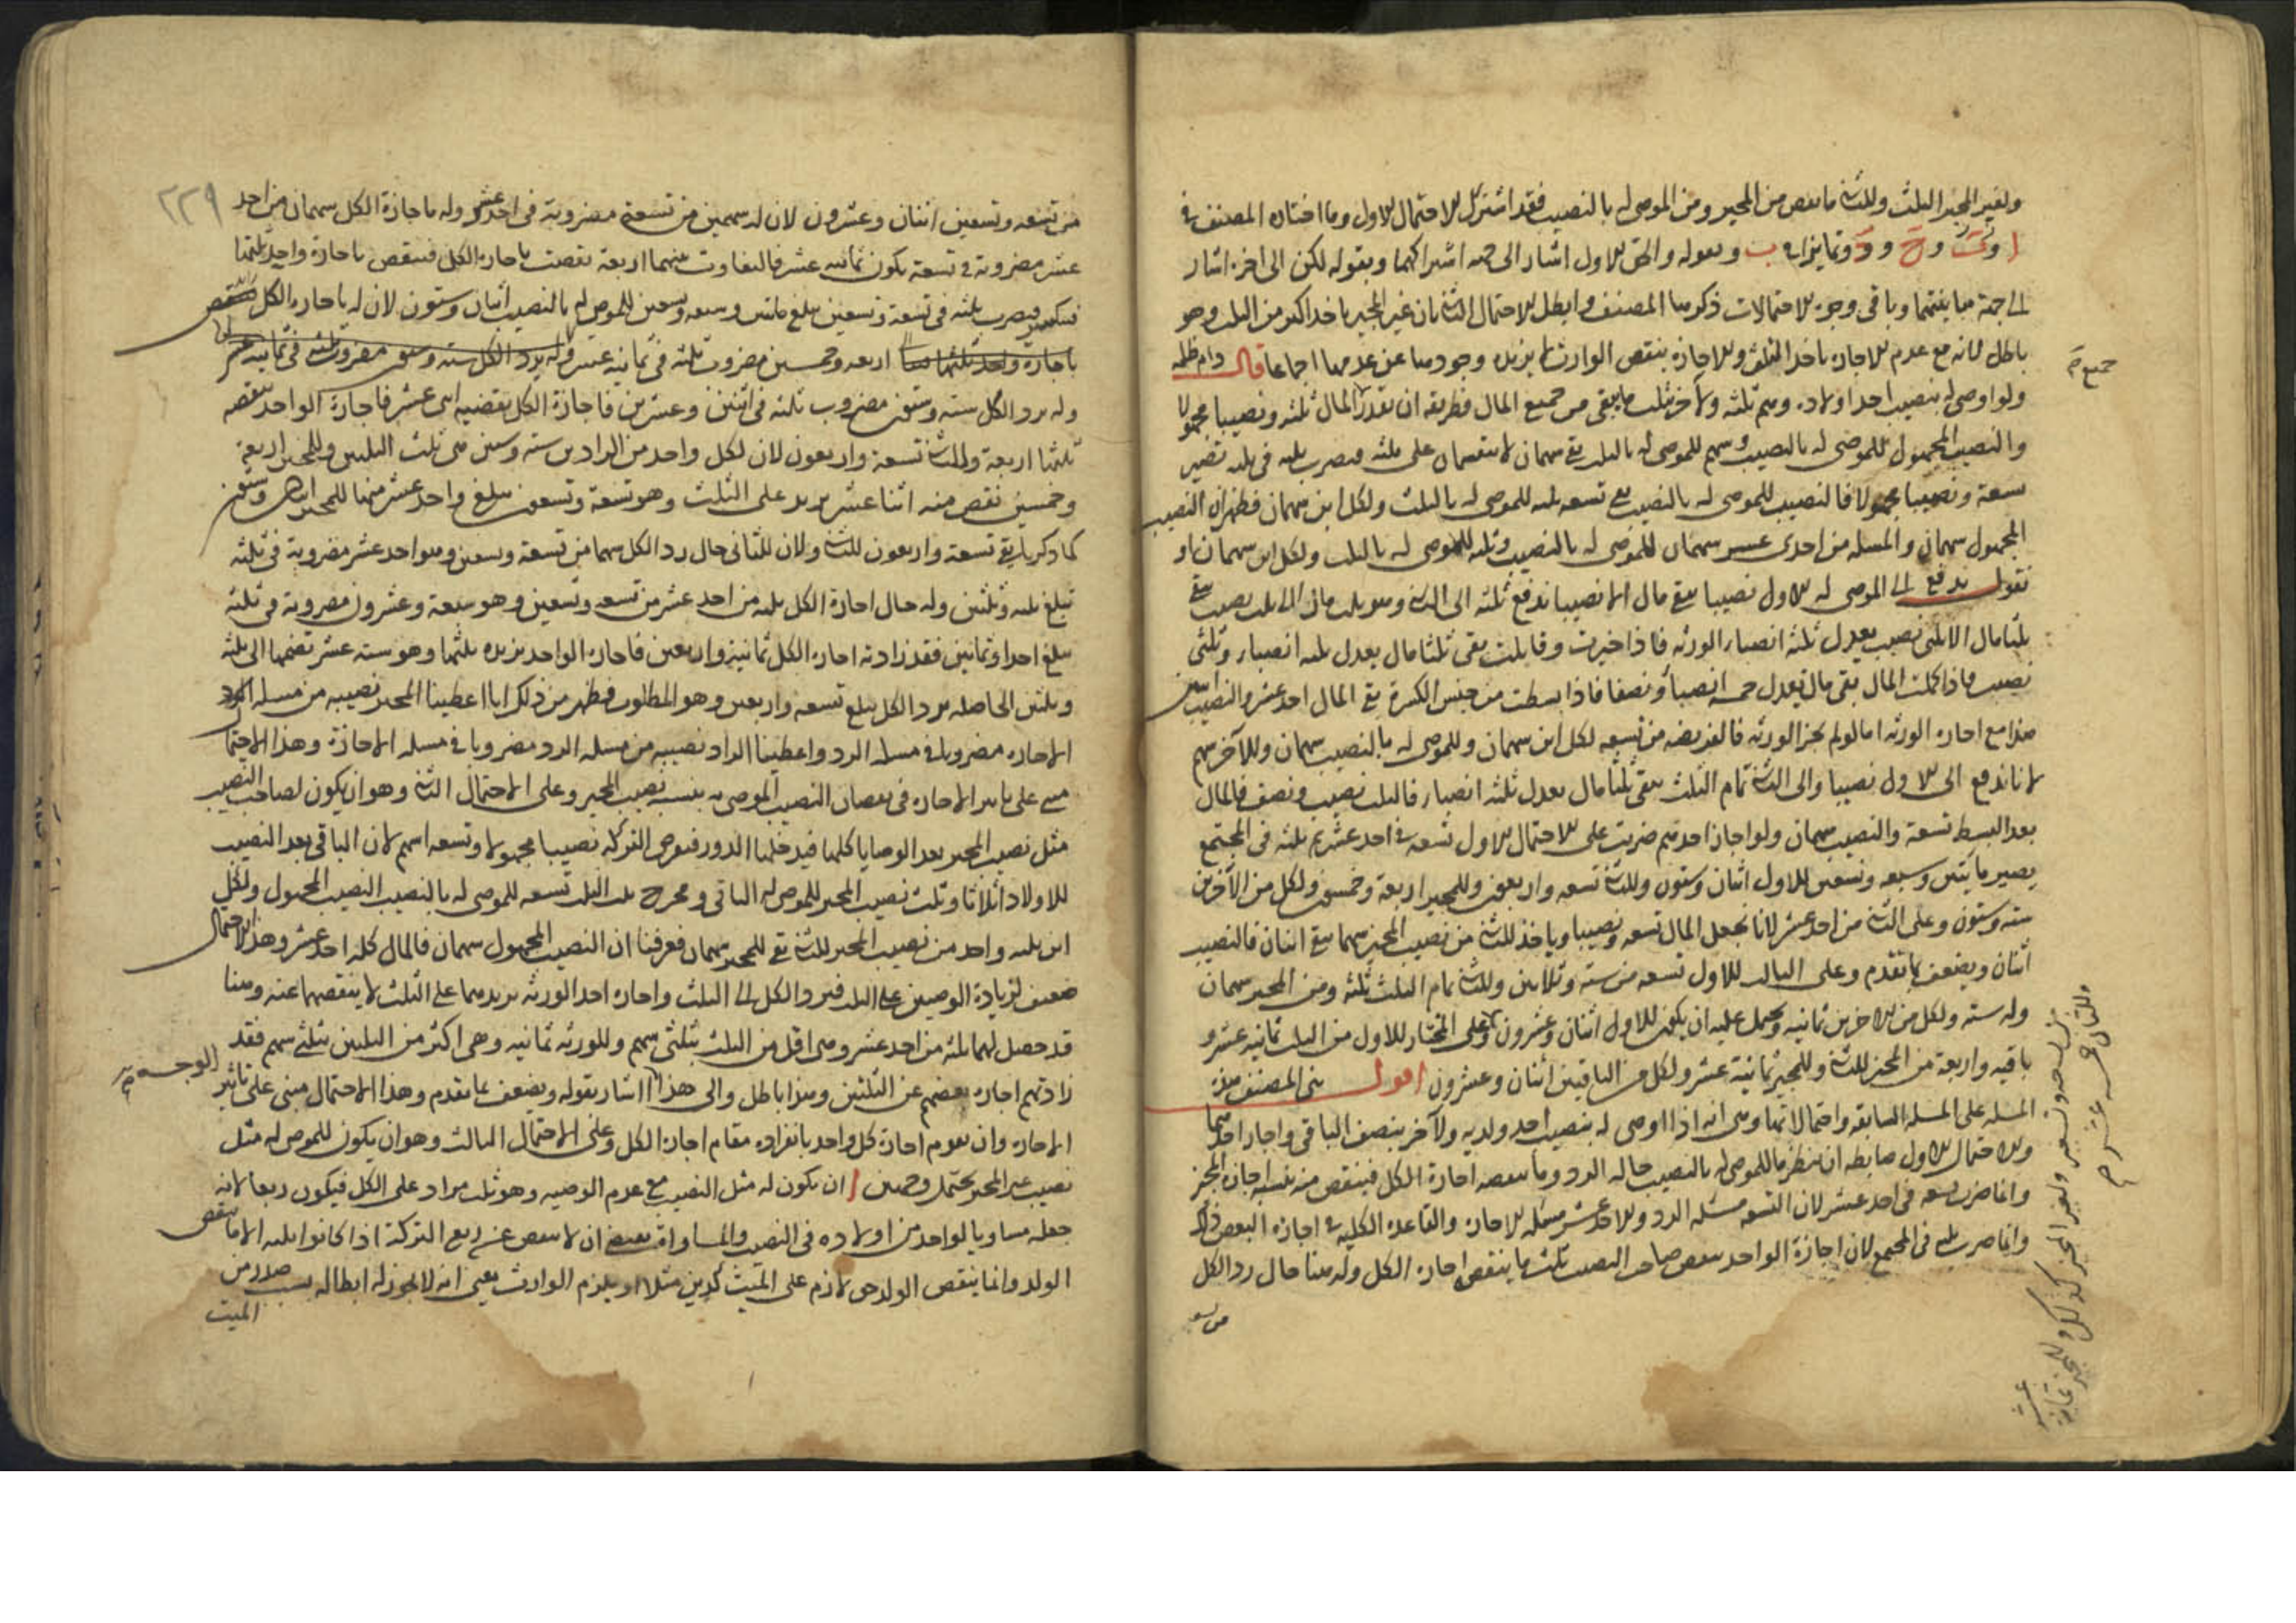 ولغير المجيز الثلث وللثاني ما نقص من المجيز ومن الموصى له بالنصيب فقد اشترك الاحتمال الاول وما اختاره المصنف في
ا و وح ود وتمايزا في ب وبقوله والحق الاول اشار الى جهة اشتراكهما وبقوله لكن الى اخره اشار
الى جهة مباينتهما وباقي وجوه الاحتمالات ذكرها المصنف وابطل الاحتمال الثاني بان غير المجيز ياخذ اكثر من الثلث وهو
باطل لانه مع عدم الاجازة ياخذ الثلث والاجازة ينقص الوارث لا يزيده وجودها عن عدمها اجماعا قال دام ظله
ولو اوصى له بنصيب احد اولاده وهم ثلثة ولآخر بثلث ما يبقى من جميع المال فطريقه ان تقدر المال ثلثة ونصيبا مجهولا
والنصيب المجهول للموصى له بالنصيب وسهم للموصى له بالثلث يبقى سهمان لا ينقسمان على ثلثة فيضرب ثلثة في ثلثة تصير
تسعة ونصيبا مجهولا فالنصيب للموصى له بالنصيب يبقى تسعة ثلثة للموصى له بالثلث ولكل ابن سهمان فظهر ان النصيب
المجهول سهمان والمسئلة من احدى عشر سهمان للموصى له بالنصيب وثلثة للموصى له بالثلث ولكل ابن سهمان او
نقول يدفع الى الموصى له الاول نصيبا يبقى مال الا نصيبا ندفع ثلثه الى الثاني وهو ثلث مال الا ثلث نصيب يبقى
ثلثا مال الا ثلثي نصيب يعدل ثلثة انصباء الورثة فاذا جبرت وقابلت بقي ثلثا مال يعدل ثلثة انصباء وثلثي
نصيب فاذا كملت المال بقي مال يعدل خمسة انصباء ونصفا فاذا بسطت من جنس الكسر بقي المال احد عشر والنصيب اثنين
هذا مع اجازة الورثة اما لو لم يجز الورثة فالفريضة من تسعة لكل ابن سهمان وللموصى له بالنصيب سهمان وللآخر سهم
لانا ندفع الى الاول نصيبا والى الثاني تمام الثلث يبقى ثلثا مال يعدل ثلثة انصباء فالثلث نصيب ونصف فالمال
بعد البسط تسعة والنصيب سهمان ولو اجاز احدهم ضربت على الاحتمال الاول تسعة في احد عشر ثم ثلثة في المجتمع
يصير مايتين وسبعة وتسعين للاول اثنان وستون وللثاني تسعة واربعون وللمجيز اربعة وخمسون ولكل من الآخرين
ستة وستون وعلى الثاني من احد عشر لانا نجعل المال تسعة ونصيبا وياخذ الثاني من نصيب المجيز سهما يبقى اثنان فالنصيب
اثنان ويضعف بما تقدم وعلى الثالث للاول تسعة من ستة وثلاثين وللثاني تمام الثلث ثلثة ومن المجيز سهمان
وله ستة ولكل من الاخرين ثمانية ويحتمل عليه ان يكون للاول اثنان وعشرون وعلى المختار للاول من الثلث ثمانية عشر و
باقيه واربعة من المجيز للثاني وللمجيز ثمانية عشر ولكل من الباقيين اثنان وعشرون اقول بنى المصنف هذه
المسئلة على المسئلة السابقة واحتمالاتها وهي انه اذا اوصى له بنصيب احد ولديه ولآخر بنصف الباقي واجاز احدهما
والاحتمال الاول ضابطه ان ننظر ما للموصى له بالنصيب حالة الرد وما ينقصه اجازة الكل فينقص منه بنسبة اجازة المجيز
وانما ضرب تسعة في احد عشر لان التسعة مسئلة الرد والاحد عشر مسئلة الاجازة والقاعدة الكلية في اجازة البعض ذلك
وانما ضرب ثلثة في المجتمع لان اجازة الواحد ينقص صاحب النصيب ثلث ما ينقص اجازة الكل وله هنا حال رد الكل
من تسعة
جميع صح
٢٢٩
من تسعة وتسعين اثنان وعشرون لان له سهمين من تسعة مضروبة في احد عشر وله باجازة الكل سهمان من احد
عشر مضروبة في تسعة يكون ثمانية عشر فالتفاوت بينهما اربعة نقصت باجازة الكل فينقص باجازة واحد ثلثها
فينكسر فيضرب ثلثة في تسعة وتسعين يبلغ مائتين وسبعة وتسعين للموصى له بالنصيب اثنان وستون لان له باجازة الكل
اربعة وخمسين مضروب ثلثة في ثمانية عشر
وله برد الكل ستة وستون مضروب ثلثة في اثنين وعشرين فاجازة الكل ينقصه اثنى عشر فاجازة الواحد ينقصه
ثلثها اربعة وللثاني تسعة واربعون لان لكل واحد من الرادين ستة وستين هي ثلث الثلثين وللمجيز اربعة
وخمسين نقص منه اثنا عشر يزيد على الثلث وهو تسعة وتسعون يبلغ واحد عشر منها للمجيز اثنان وستون
كما ذكر يبقى تسعة واربعون للثاني ولان للثاني حال رد الكل سهما من تسعة وتسعين وهو احد عشر مضروبة في ثلثة
تبلغ ثلثة وثلثين وله حال اجازة الكل ثلثة من احد عشر من تسعة وتسعين وهو سبعة وعشرون مضروبة في ثلثة
يبلغ احدا وثمانين فقد زادته اجازة الكل ثمانية واربعين فاجازة الواحد يزيده ثلثها وهو ستة عشر تضمها الى ثلثة
وثلثين الحاصلة برد الكل يبلغ تسعة واربعين وهو المطلوب فظهر من ذلك انا اعطينا المجيز نصيبه من مسئلة
الاجازة مضروبا في مسئلة الرد واعطينا الراد نصيبه من مسئلة الرد مضروبا في مسئلة الاجازة وهذا الاحتمال
مبني على تاثير الاجازة في نقصان النصيب الموصى به بنسبة نصيب المجيز وعلى الاحتمال الثاني وهو ان يكون لصاحب النصيب
مثل نصيب المجيز بعد الوصايا كلها فيدخلها الدور فنفرض التركة نصيبا مجهولا وتسعة اسهم لان الباقي بعد النصيب
للاولاد اثلاثا وثلث نصيب المجيز للموصى له الباقي ومخرج ثلث الثلث تسعة للموصى له بالنصيب النصيب المجهول ولكل
ابن ثلثة وواحد من نصيب المجيز للثاني بقي للمجيز سهمان فعرفنا ان النصيب المجهول سهمان فالمال كله احد عشر وهذا الاحتمال
ضعيف لزيادة الوصيتين على الثلث فيرد الكل الى الثلث واجازة احد الورثة يزيدهما على الثلث لا ينقصهما عنه وهنا
قد حصل لهما ثلثة من احد عشر وهي اقل من الثلث بثلثي سهم وللورثة ثمانية وهي اكثر من الثلثين بثلثي سهم فقد
زادتهم اجازة بعضهم عن الثلثين وهذا باطل والى هذا اشار بقوله ويضعف بما تقدم وهذا الاحتمال مبنى على تاثير
الاجازة وان يقوم اجازة كل واحد بانفراده مقام اجازة الكل وعلى الاحتمال الثالث وهو ان يكون للموصى له مثل
نصيب غير المجيز يحتمل وجهين ا ان يكون له مثل النصيب مع عدم الوصية وهو ثلث مزاد على الكل فيكون ربعا لانه
جعله مساويا لواحد من اولاده في النصيب والمساواة يقتضي ان لا ينقص عن ربع التركة اذا كانوا ثلثة الا ما ينقص
الولد وانما ينقص الولد حق لازم على الميت كدين مثلا او يلزم الوارث يعني انه لا يجوز له ابطاله بسبب صدر من
الميت
الوجه صح